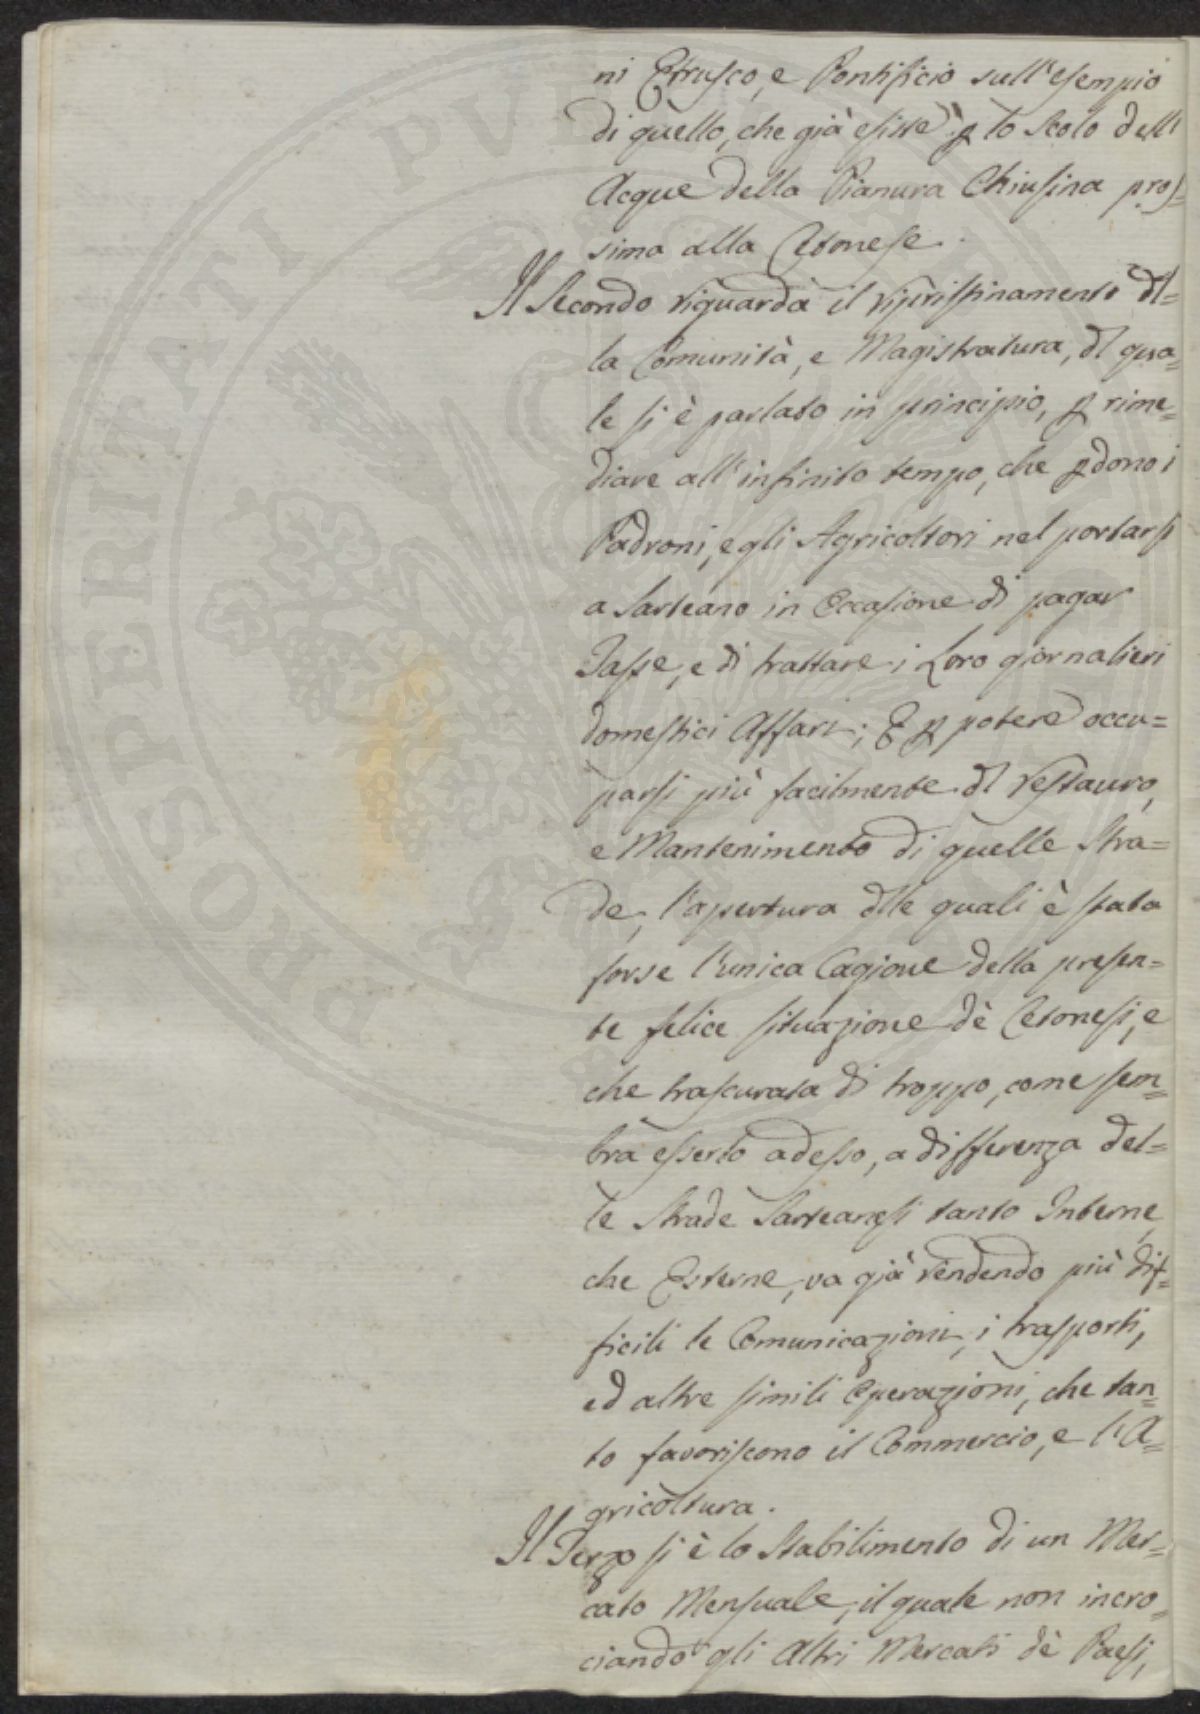 ni Etrusco, e Pontificio sull'esempio
di quello, che già esiste p lo scolo dell'
Acque della Pianura Chiusina pros=
sima alla Cetonese.
Il Secondo riguarda il ripristinamento dl=
la Comunità, e Magistratura, dl qua=
le si è parlato in principio, p rime=
diare all'infinito tempo, che pdono i
Padroni, e gli Agricoltori nel portarsi
a Sarteano in Occasione di pagar
Tasse, e di trattare i Loro giornalieri
domestici Affari; E p potere occu=
parsi più facilmente dl restauro,
e Mantenimento di quelle Stra=
de, l'apertura dlle quali è stata
forse l'unica Cagione della presen=
te felice situazione dè Cetonesi, e
che trascurata di troppo, come sem=
bra esserlo adesso, a differenza del=
le Strade Sarteanesi tanto Interne,
che Esterne, va già rendendo più dif=
ficili le Comunicazioni, i trasporti,
ed altre simili Operazioni, che tan=
to favoriscono il Commercio, e l'A=
gricoltura.
Il Terzo si è lo Stabilimento di un Mer=
cato Mensuale, il quale non incro=
ciando gli Altri Mercati dè Paesi,
PROSPERITATI PVBLICAE